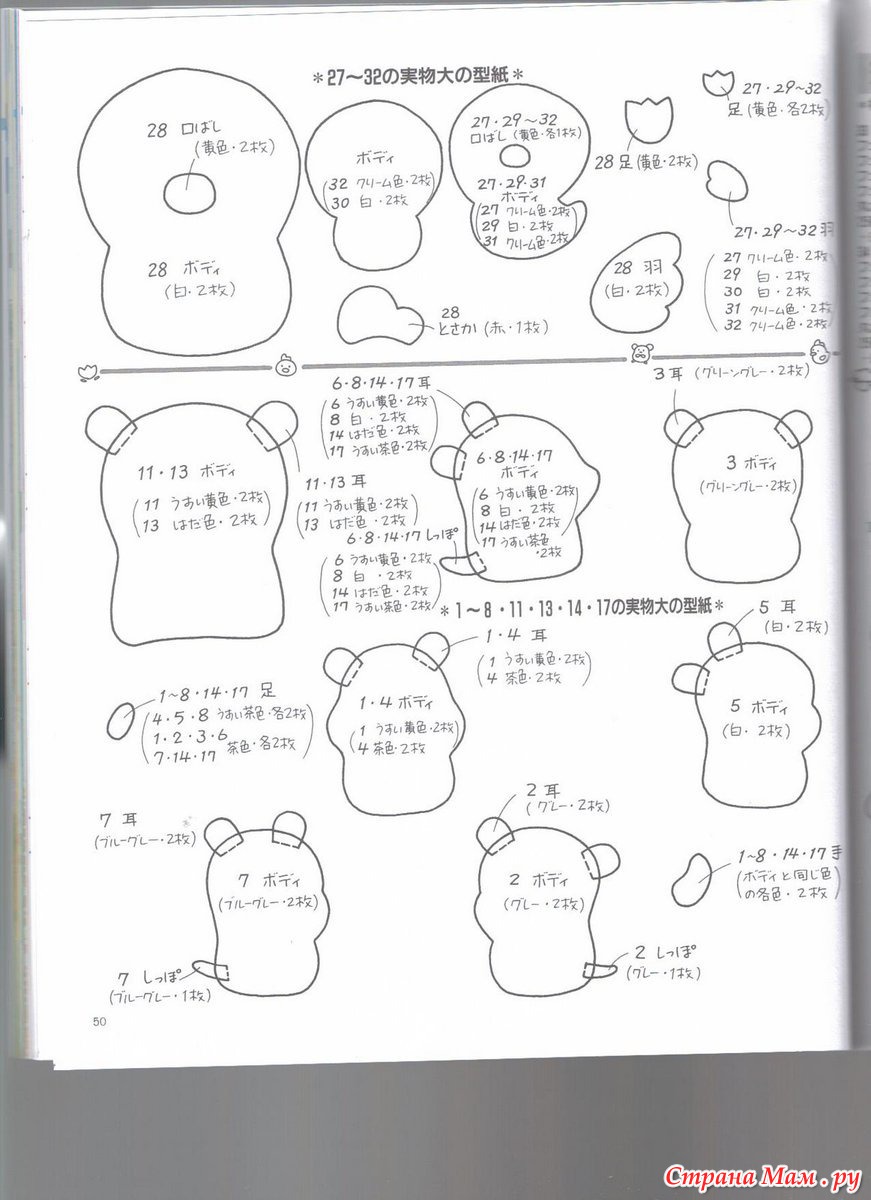 *27〜32の実物大の型紙*
28 口ばし
(黄色・2枚)
28 ボディ
(白・2枚)
ボディ
32 クリーム色・2枚
30 白・2枚
27・29〜32
口ばし(黄色・各1枚)
27・29・31
ボディ
27 クリーム色・2枚
29 白・2枚
31 クリーム色・2枚
28 足(黄色・2枚)
27・29〜32
足(黄色・各2枚)
27・29〜32 羽
27 クリーム色・2枚
29 白・2枚
30 白・2枚
31 クリーム色・2枚
32 クリーム色・2枚
28 羽
(白・2枚)
28
とさか(赤・1枚)
11・13 ボディ
11 うすい黄色・2枚
13 はだ色・2枚
11・13 耳
11 うすい黄色・2枚
13 はだ色・2枚
6・8・14・17 耳
6 うすい黄色・2枚
8 白・2枚
14 はだ色・2枚
17 うすい茶色・2枚
6・8・14・17
ボディ
6 うすい黄色・2枚
8 白・2枚
14 はだ色・2枚
17 うすい茶色
・2枚
6・8・14・17 しっぽ
6 うすい黄色・2枚
8 白・2枚
14 はだ色・2枚
17 うすい茶色・2枚
3 耳(グリーングレー・2枚)
3 ボディ
(グリーングレー・2枚)
*1〜8・11・13・14・17の実物大の型紙*
1・4 耳
1 うすい黄色・2枚
4 茶色・2枚
1・4 ボディ
1 うすい黄色・2枚
4 茶色・2枚
5 耳
(白・2枚)
5 ボディ
(白・2枚)
1〜8・14・17 足
4・5・8 うすい茶色・各2枚
1・2・3・6
7・14・17 茶色・各2枚
7 耳
(ブルーグレー・2枚)
7 ボディ
(ブルーグレー・2枚)
7 しっぽ
(ブルーグレー・1枚)
2 耳
(グレー・2枚)
2 ボディ
(グレー・2枚)
2 しっぽ
(グレー・1枚)
1〜8・14・17 手
(ボディと同じ色
の各色・2枚)
50
Страна Мам.ру